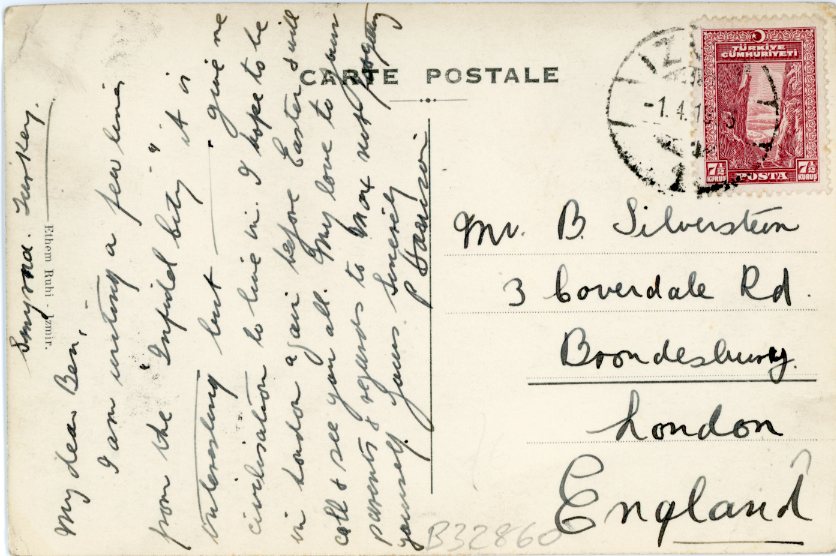 CARTE POSTALE
Smyrna. Turkey.
My dear Ben,
I am writing a few lines
from the "Infidel City" it is
interesting but – give me
civilisation to live in. I hope to be
in London again before Easter & will
call & see you all. My love to your
parents & regards to Max not forgetting
yourself. Yours Sincerely
P Harrison
Ethem Ruhi - Izmir.
TÜRKİYE
CÜMHURİYETİ
7½ KURUŞ
POSTA
7½ KURUŞ
-1.4.19
1
Mr. B. Silverstein
3 Coverdale Rd.
Brondesbury
London
England
B32860